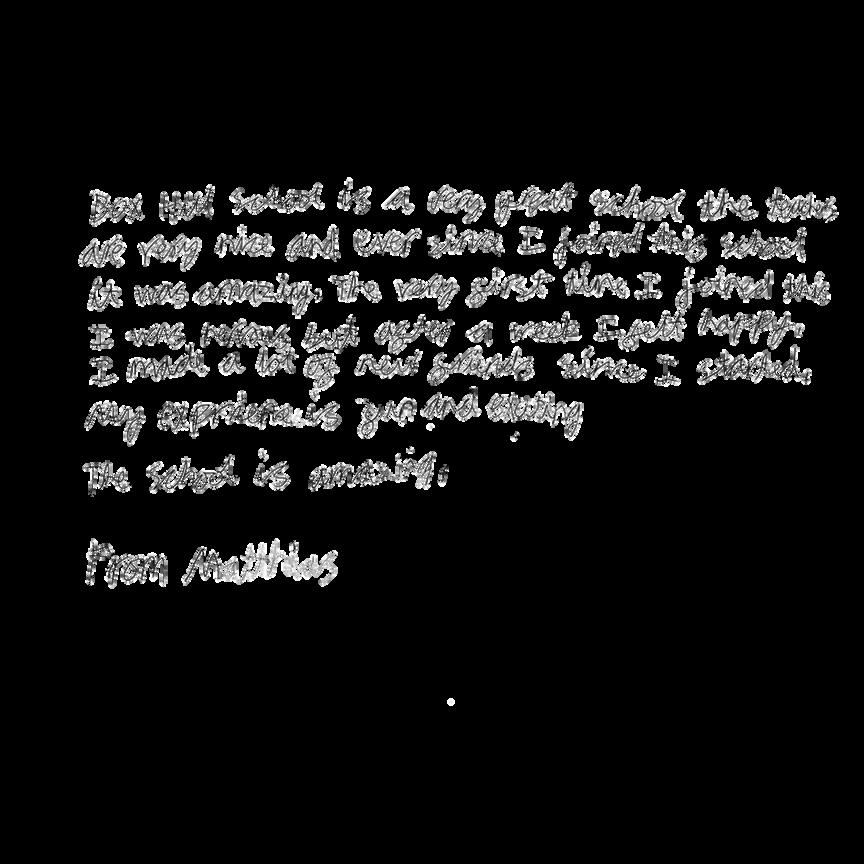 Box Hill School is a very great school the teachers
are very nice and ever since I joined this school
it was amazing. The very first time I joined this
I was nervous but after a week I felt happy.
I made a lot of new friends since I started.
my experience is fun and exciting
The school is amazing.
From Matthias